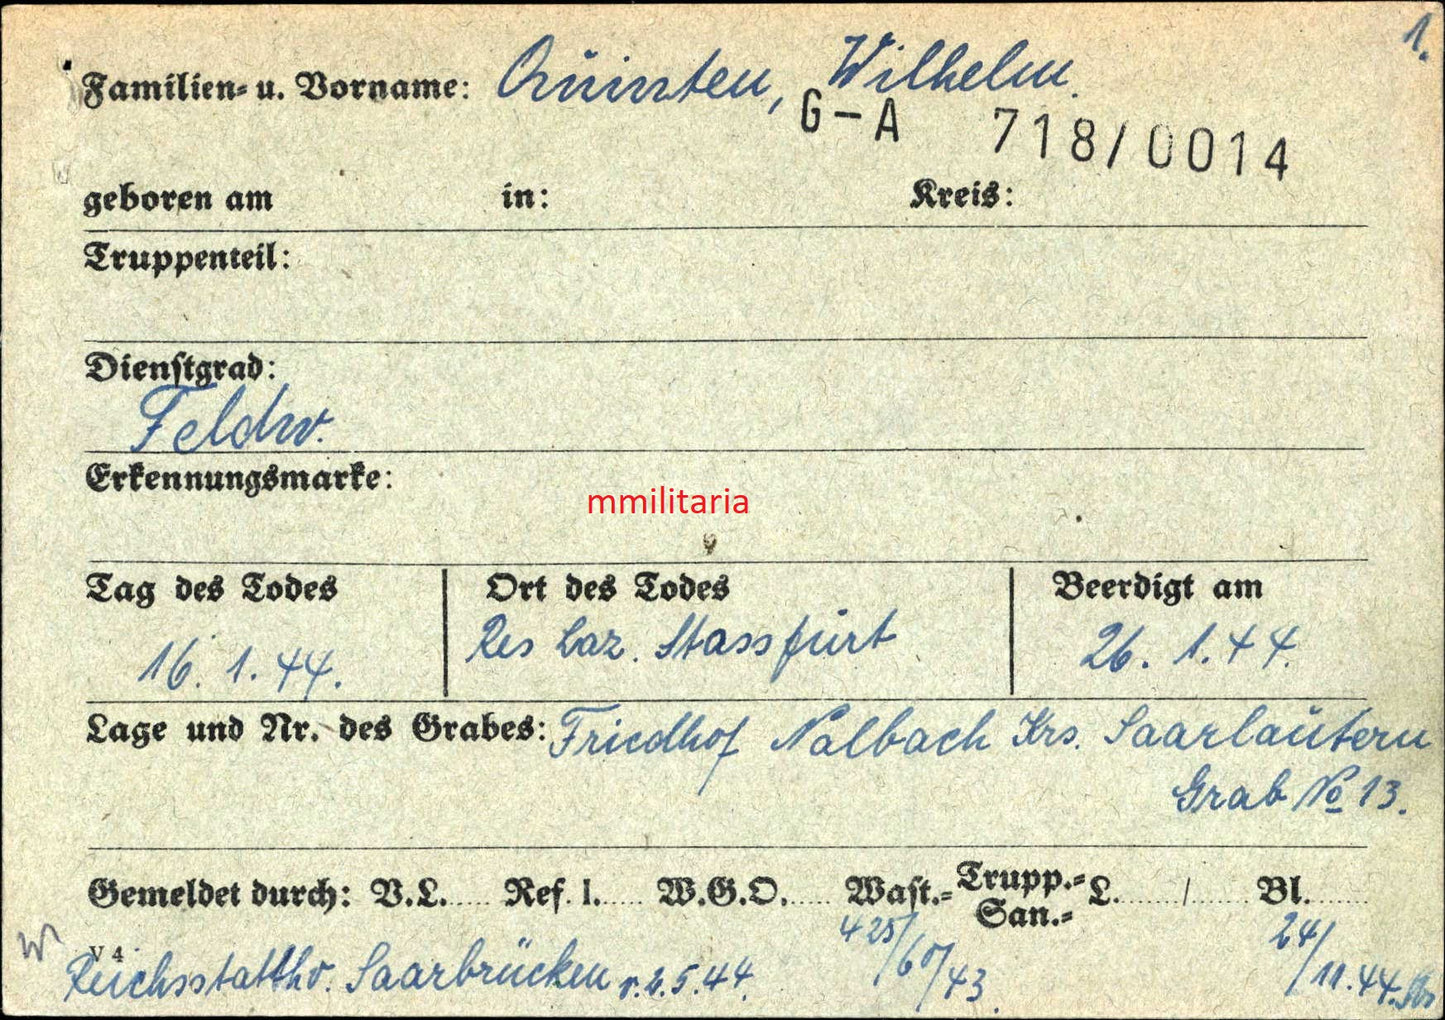 1.
Familien- u. Vorname: Quinten, Wilhelm.
G-A 718/0014
geboren am in: Kreis:
Truppenteil:
Dienstgrad:
Feldw.
Erkennungsmarke:
mmilitaria
Tag des Todes Ort des Todes Beerdigt am
16. 1. 44. Res Laz. Stassfurt 26. 1. 44.
Lage und Nr. des Grabes: Friedhof Nalbach Krs. Saarlautern
Grab No 13.
Gemeldet durch: V.L..... Ref. I..... W.G.O..... Wast.= Trupp.= San.= L......../...... Bl.......
425/ 24/
V 4
Reichsstatth. Saarbrücken v. 2.5.44. /43. /11.44.